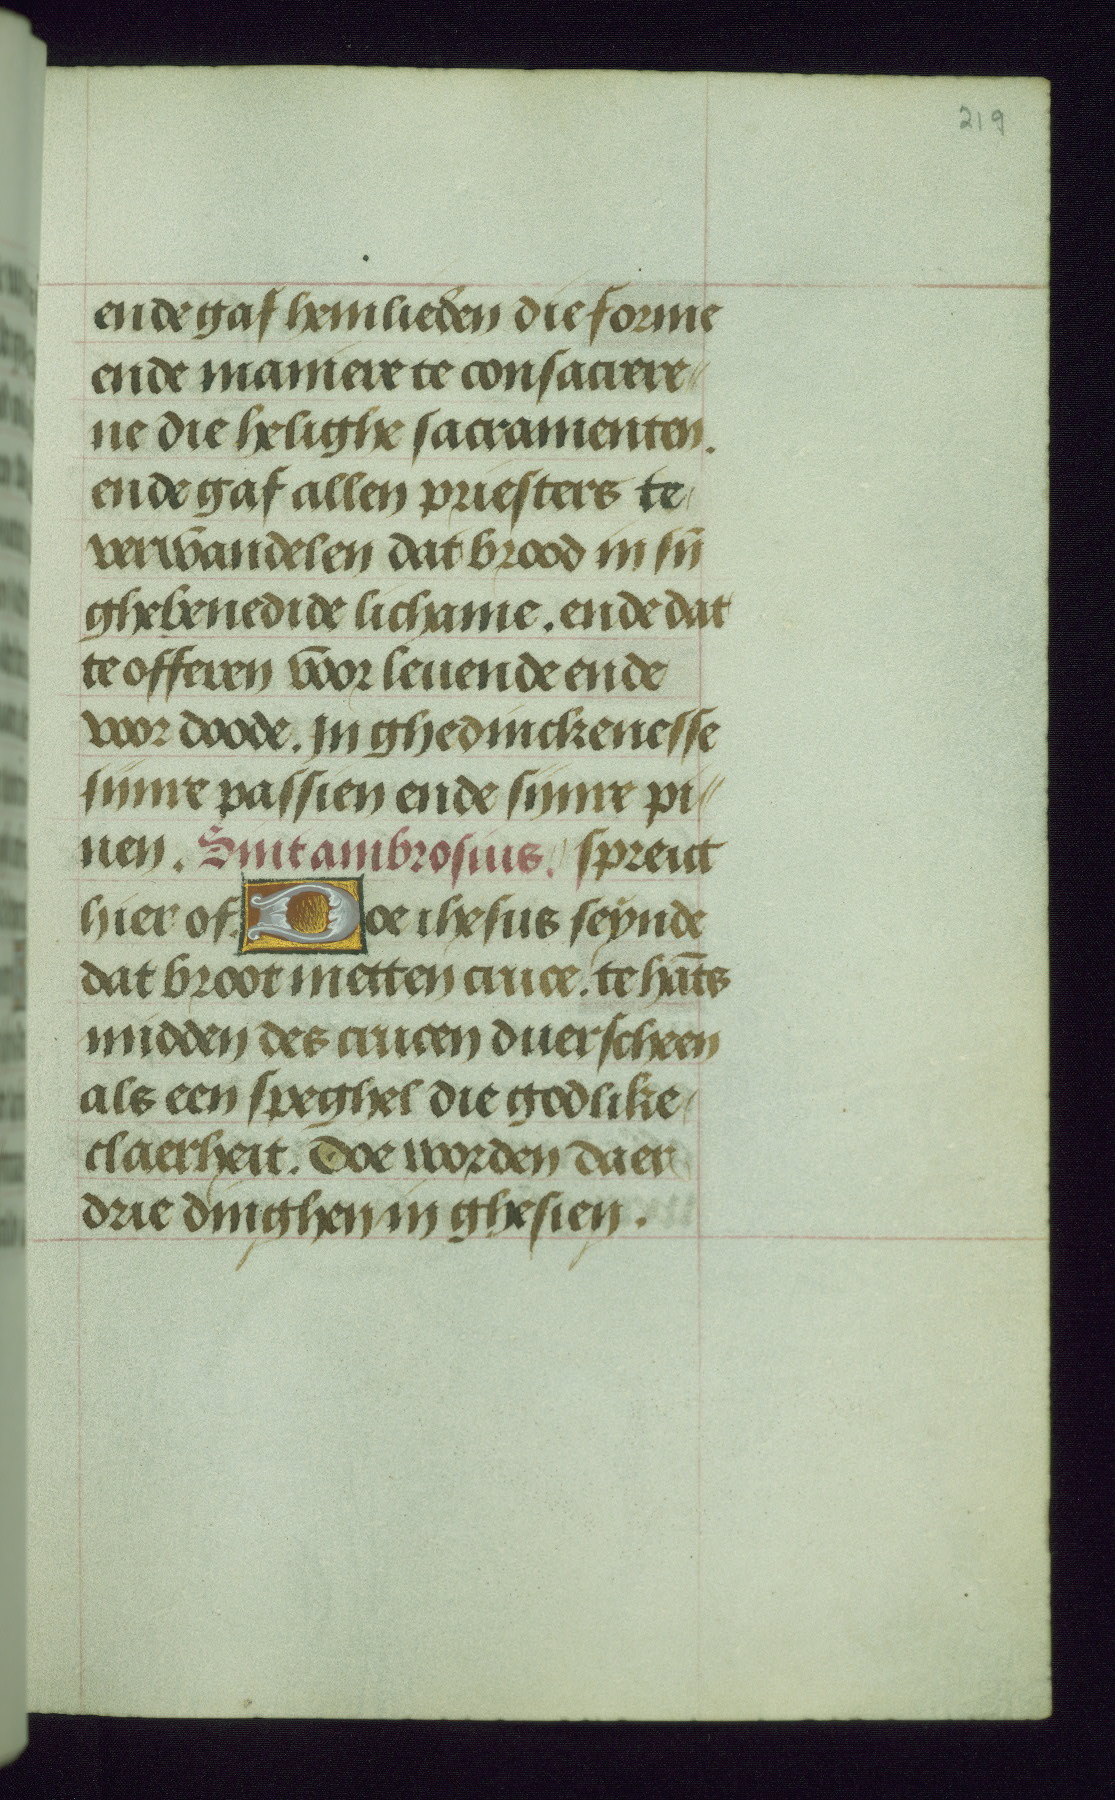 219
ende gaf hemlieden die forme
ende maniere te consacrere//
ne die helighe sacramenten.
ende gaf allen priesters te
verwandelen dat brood in sijn
ghebenedide lichame. ende dat
te offeren voor leuende ende
voor doode. In ghedinckenesse
sijnre passien ende sijnre pi//
nen. Sint ambrosius. spreict
hier of. Doe ihesus seynde
dat broot metten cruce. te hāts
midden des crucen duerscheen
als een speghel die godlike
claerheit. Doe worden daer
drie dinghen in ghesien.